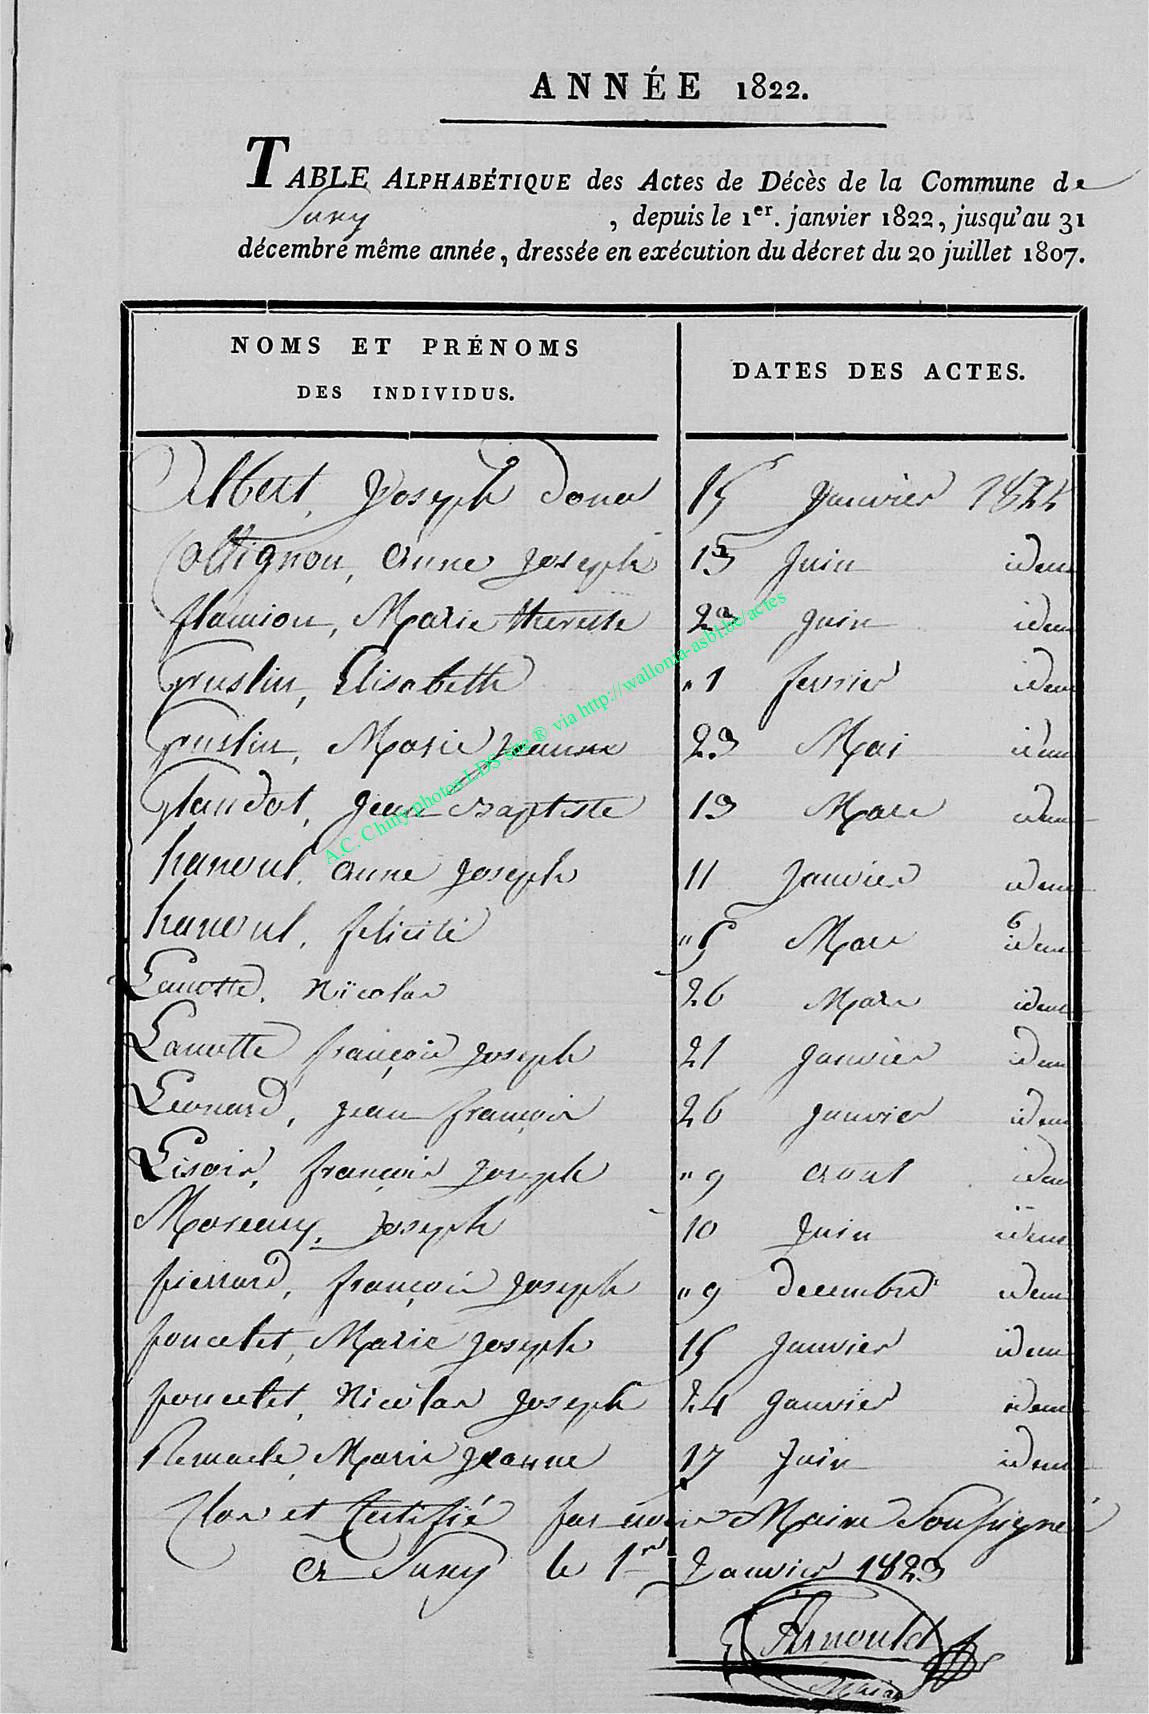 ANNÉE 1822.
TABLE ALPHABÉTIQUE des Actes de Décès de la Commune de
Suxy , depuis le 1er. janvier 1822, jusqu'au 31
décembre même année, dressée en exécution du décret du 20 juillet 1807.
NOMS ET PRÉNOMS
DES INDIVIDUS.
DATES DES ACTES.
Albert, Joseph 15 Janvier 1822
Collignon, Anne Joseph 13 Juin idem
flamion, Marie therese 23 Juin idem
Gustin, Elisabette "1 fevrier idem
Gustin, Marie jeanne 23 Mai idem
Glaudot, Jean Baptiste 13 Mars idem
hanoul, anne Joseph 11 Janvier idem
hanoul, felicité "5 Mars idem
Lamotte, Nicolas 26 Mars idem
Lamotte françois Joseph 21 Janvier idem
Leonard, jean françois 26 Janvier idem
Lisoir, françois Joseph "9 aout idem
Moreaux, Joseph 10 Juin idem
pierrard, françois Joseph "9 decembre idem
poncelet, Marie Joseph 15 Janvier idem
poncelet, Nicolas Joseph 24 Janvier idem
Remacle, Marie Jeanne 17 Juin idem
Clos et Certifié par nous Maire Soussigné
a Suxy le 1er Janvier 1823
Arnould
Maire
A.C. Chiny photos LDS site ® via http://wallonia-asbl.be/actes